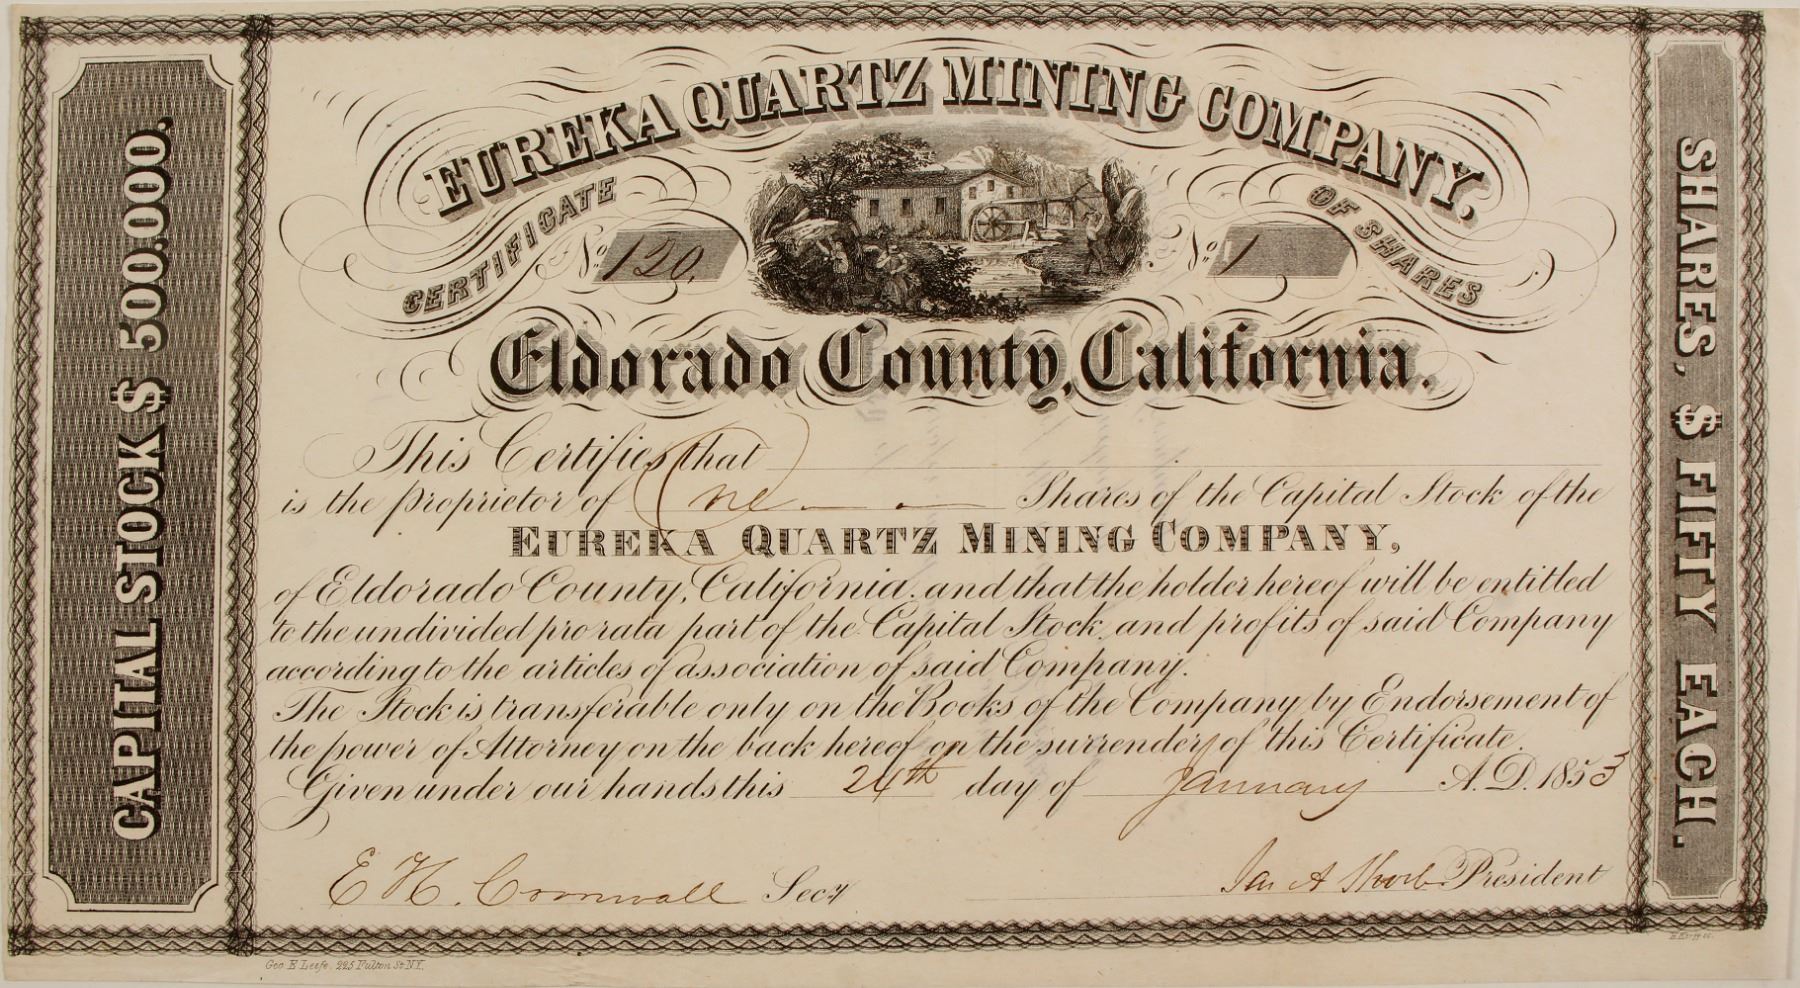 EUREKA QUARTZ MINING COMPANY.
CERTIFICATE OF SHARES
No. 120. No. 1
Eldorado County, California.
CAPITAL STOCK $ 500.000.
SHARES, $ FIFTY EACH.
This Certifies that
is the proprietor of One Shares of the Capital Stock of the
EUREKA QUARTZ MINING COMPANY,
of Eldorado County, California. and that the holder hereof will be entitled
to the undivided pro rata part of the Capital Stock and profits of said Company
according to the articles of association of said Company.
The Stock is transferable only on the Books of the Company by Endorsement of
the power of Attorney on the back hereof on the surrender of this Certificate.
Given under our hands this 24th day of January A.D. 1853
E H. Cornwall Secy
Jas A President
Geo E Leefe. 225 Fulton St N.Y.